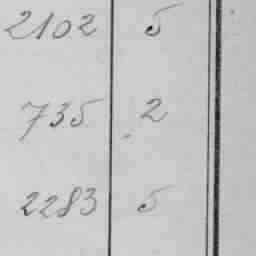 2102 5
735 2
2283 5